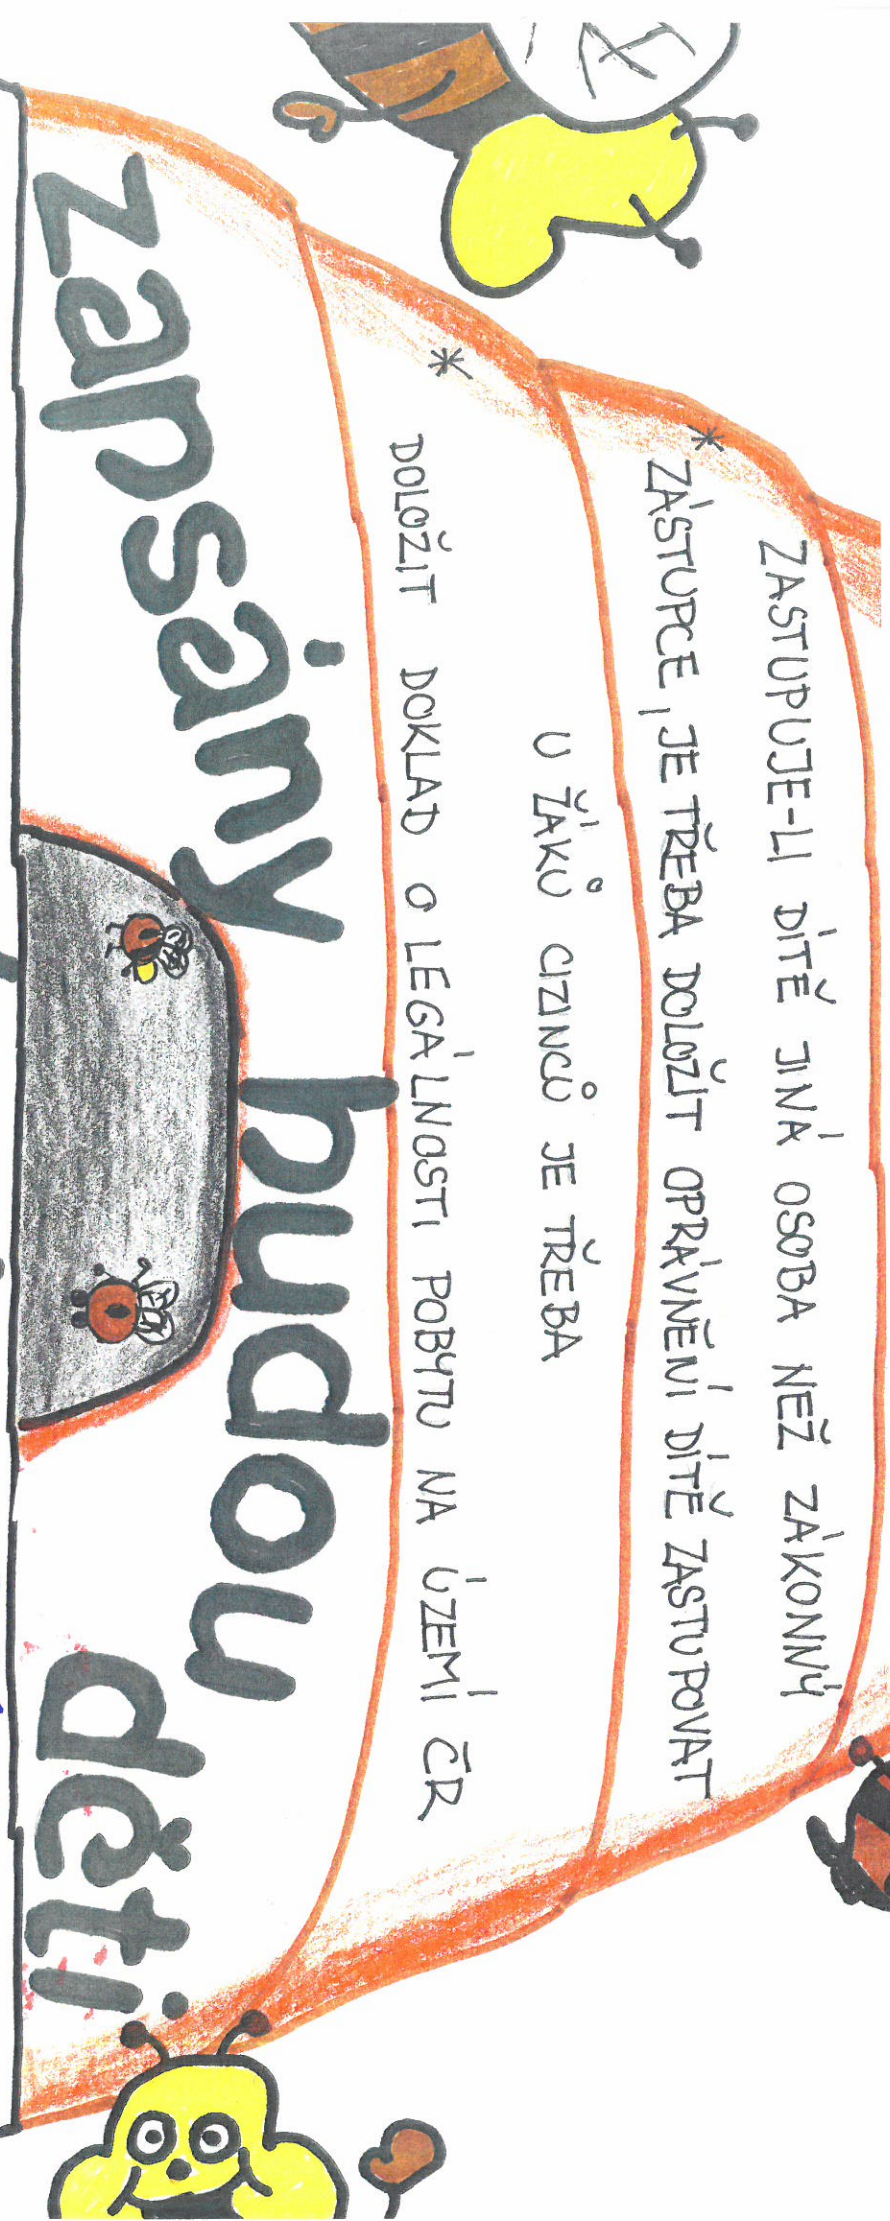 * ZASTUPUJE-LI DÍTĚ JINÁ OSOBA NEŽ ZÁKONNÝ
ZÁSTUPCE, JE TŘEBA DOLOŽIT OPRÁVNĚNÍ DÍTĚ ZASTUPOVAT
* U ŽÁKŮ CIZINCŮ JE TŘEBA
DOLOŽIT DOKLAD O LEGÁLNOSTI POBYTU NA ÚZEMÍ ČR
zapsány budou děti